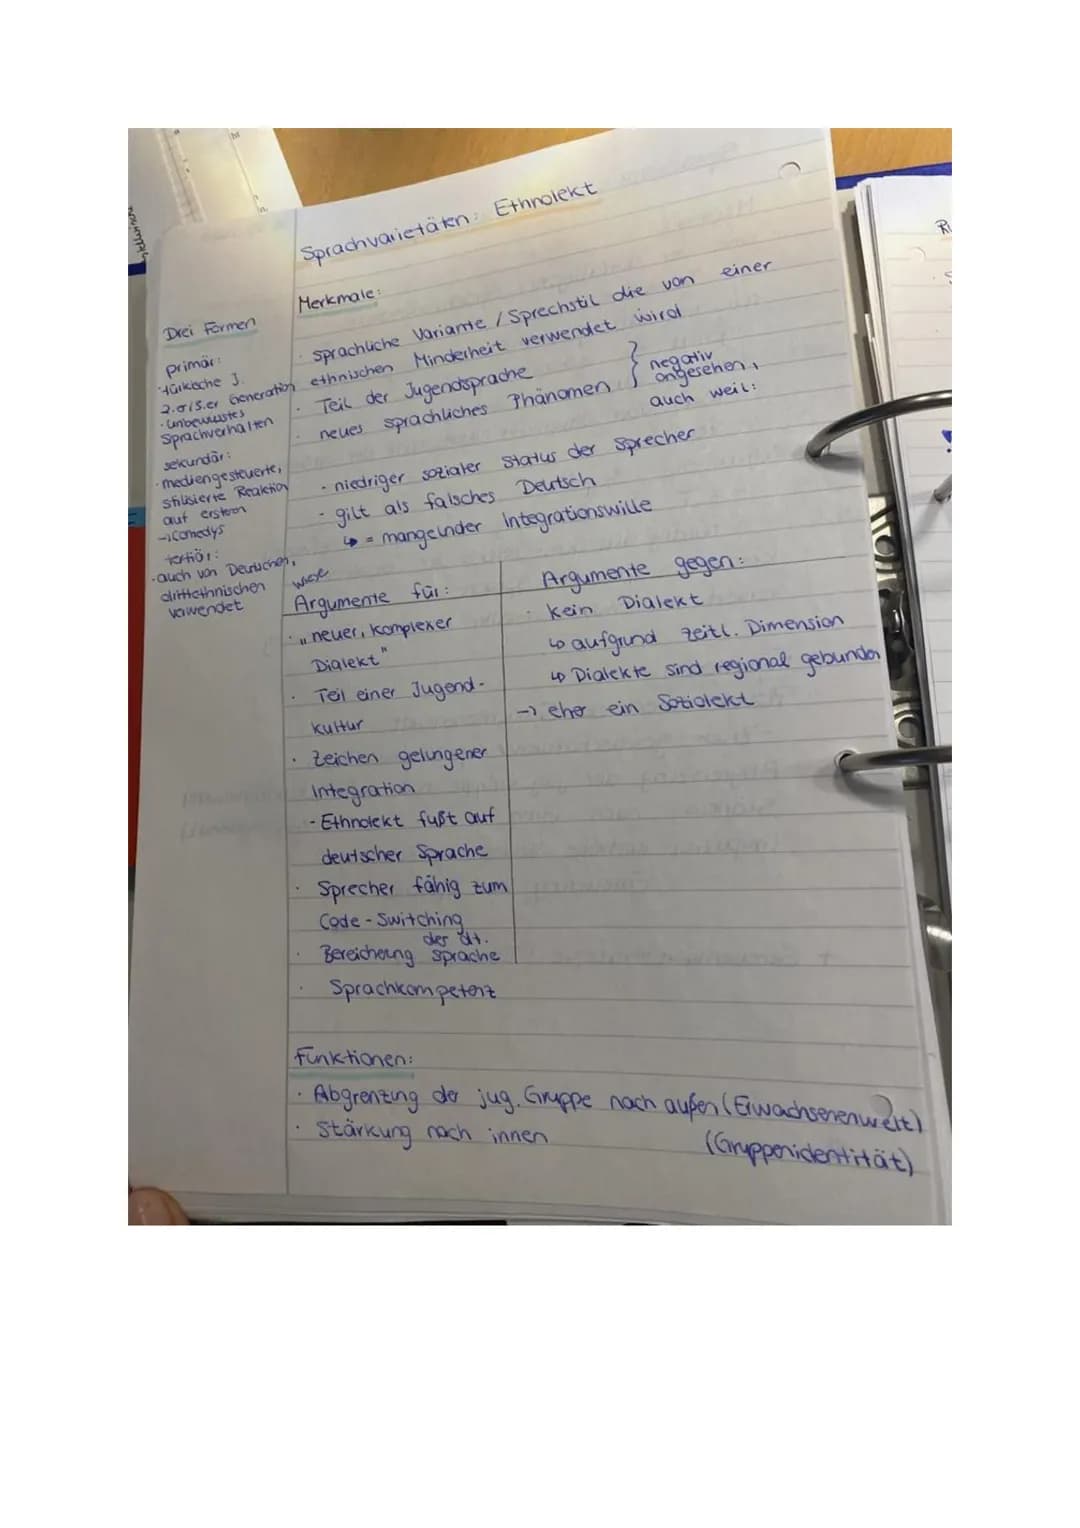 Sprachvarietäten: Ethnolekt
Merkmale:
· sprachliche Variante / Sprechstil die von einer
ethnischen Minderheit verwendet wird
· Teil der Jugendsprache
· neues sprachliches Phänomen
} negativ
angesehen,
auch weil:
- niedriger sozialer Status der Sprecher
- gilt als falsches Deutsch
↳ = mangelnder Integrationswille
Drei Formen
primär:
· türkische J.
2. o/3.er Generation
· unbewusstes
Sprachverhalten
sekundär:
· mediengesteuerte,
stilisierte Reaktion
auf ersteren
→ Comedys
tertiär:
· auch von Deutschen,
drittethnischen
verwendet
Wiese
Argumente für:
· "neuer, komplexer
Dialekt"
· Teil einer Jugend-
kultur
· Zeichen gelungener
Integration
- Ethnolekt fußt auf
deutscher Sprache
· Sprecher fähig zum
Code-Switching
· Bereicherung der dt.
Sprache
· Sprachkompetenz
Argumente gegen:
· kein Dialekt
↳ aufgrund zeitl. Dimension
↳ Dialekte sind regional gebunden
→ eher ein Soziolekt
Funktionen:
· Abgrenzung der jug. Gruppe nach außen (Erwachsenenwelt)
· Stärkung nach innen (Gruppenidentität)